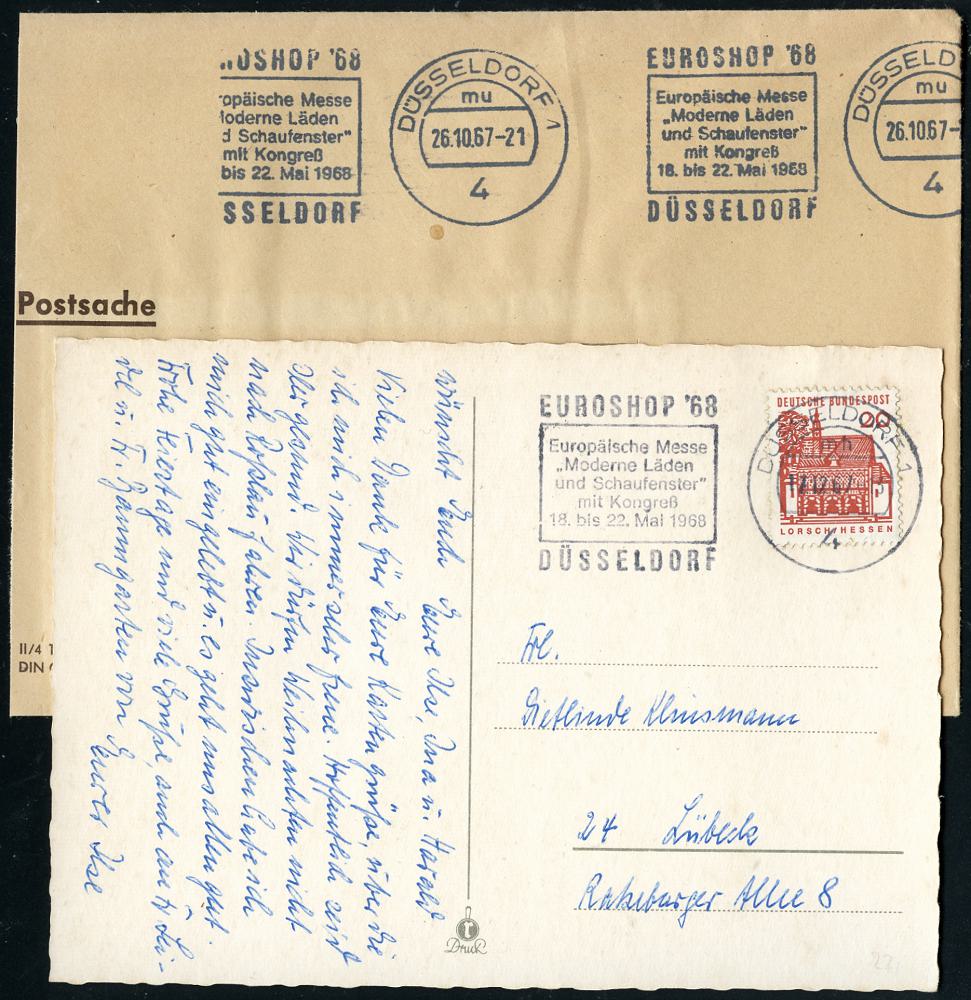 EUROSHOP '68
Europäische Messe
„Moderne Läden
und Schaufenster"
mit Kongreß
18. bis 22. Mai 1968
DÜSSELDORF
DÜSSELDORF 1
mu
26.10.67-21
4
EUROSHOP '68
Europäische Messe
„Moderne Läden
und Schaufenster"
mit Kongreß
18. bis 22. Mai 1968
DÜSSELDORF
DÜSSELD
mu
26.10.67-
4
Postsache
II/4
DIN
wünscht Euch Eure Ilse, Ina u. Harald
Vielen Dank für Eure Kartengrüße, über die
ich mich immer sehr freue. Hoffentlich seid
Ihr gesund. Wir dürfen Weihnachten nicht
nach Roßlau fahren. Inzwischen habe ich
mich gut eingelebt u. es geht uns allen gut.
Frohe Feiertage und viele Grüße, auch an Fr.
del u. Fr. Baumgarten von
Eurer Ilse
EUROSHOP '68
Europäische Messe
„Moderne Läden
und Schaufenster"
mit Kongreß
18. bis 22. Mai 1968
DÜSSELDORF
DEUTSCHE BUNDESPOST
20
LORSCH/HESSEN
DÜSSELDORF 1
mh
4
Frl.
Sietlinde Klinsmann
24 Lübeck
Ratzeburger Allee 8
t
Druck